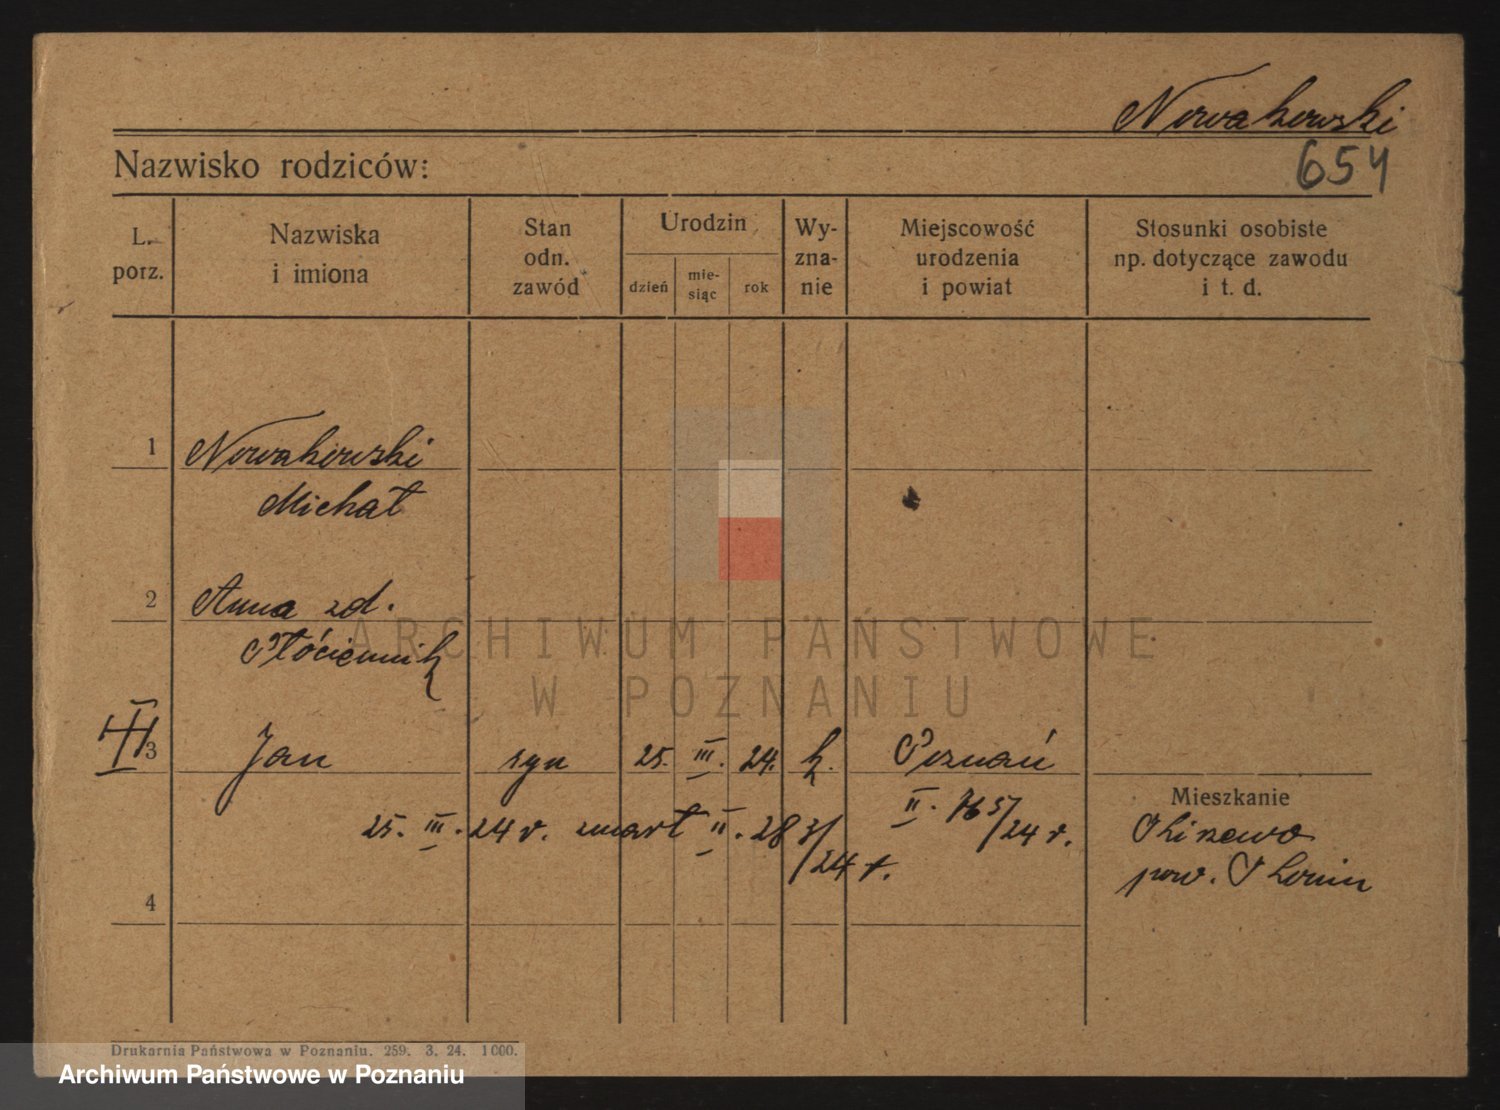 Nowakowski
Nazwisko rodziców:
654
L. porz.
Nazwiska i imiona
Stan odn. zawód
Urodzin
dzień
mie-siąc
rok
Wy-zna-nie
Miejscowość urodzenia i powiat
Stosunki osobiste np. dotyczące zawodu i t. d.
1 Nowakowski
Michał
2 Anna zd.
Płóciennik
3 Jan syn 25. III. 24. k. Poznań
II. 765/24 r.
25. III. 24 r. zmart II. 283/24 r.
Mieszkanie
pow.
4
Drukarnia Państwowa w Poznaniu. 259. 3. 24. 1000.
ARCHIWUM PAŃSTWOWE
W POZNANIU
Archiwum Państwowe w Poznaniu